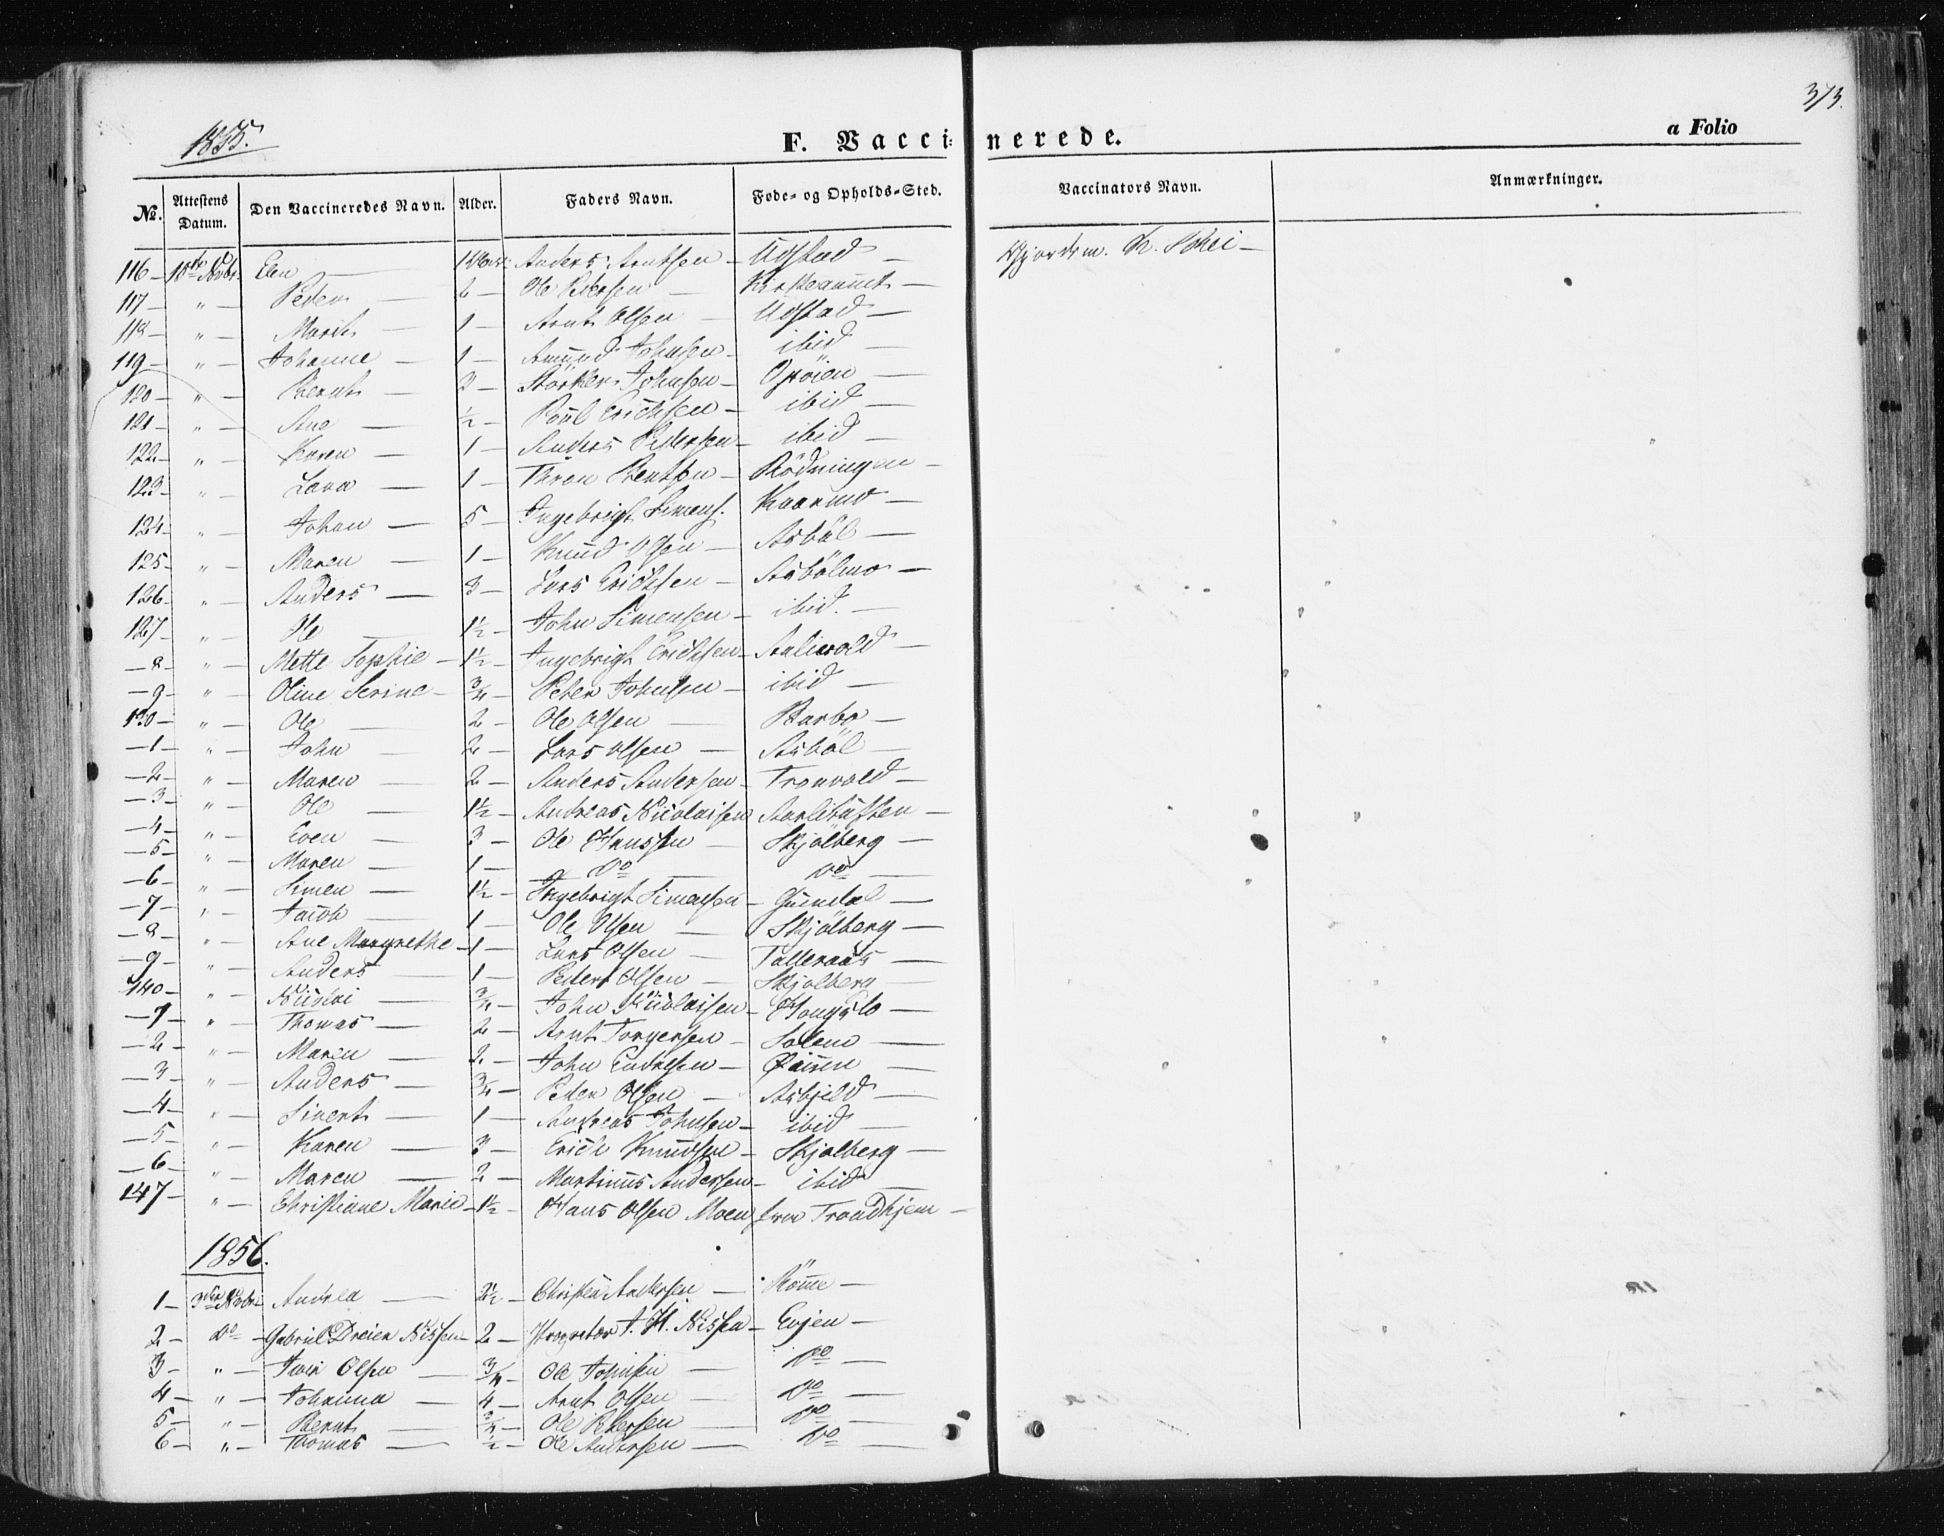 373.
1855.
F. Vaccinerede.
a Folio
No. Attestens Datum. Den Vaccineredes Navn. Alder. Faders Navn. Føde- og Opholds-Sted. Vaccinators Navn. Anmærkninger.
116 - 15de Novbr. Elen — Anders Arntsen - Udstad — Gjordem. Schei -
117 - " - Peder — 2 - Ole Pedersen —
118 - " - Marit — 1 - Arnt Olsen — Udstad —
119 - " - Johanne — 1 - Amund Johnsen - ibid —
120 - " - Bernt — 3 - Størker Johnsen - Opøien —
121 - " - Ane — ½ - Poul Erichsen - ibid —
122 - " - Karen — 1 - Anders Pedersen - ibid —
123 - " - Lava — 1 - Bentsen - Rødningen -
124 - " - Johan — 5 - Ingebrigt Simens. Kaarmo —
125 - " - Maren — 1 - Knud Olsen - Asbøl —
126 - " - Anders — 3 - Lars Erichsen - Asbølmo —
127 - " - Ole — 1½ - John Simensen - ibid. —
— 8 - " - Mette Sophie - 1½ - Ingebrigt Erichsen - Aaliwold —
— 9 - " - Oline Serine - ¾ - Peter Johnsen - ibid —
130 - " - Ole — 2 - Ole Olsen — Barbo —
— 1 - " - John — 2 - Lars Olsen — Asbøl —
— 2 - " - Maren — 2 - Anders Andersen - Tronvold —
— 3 - " - Ole — 1½ - Andreas Nicolaisen Aarlituften —
— 4 - " - Even — 3 - Ole Hanssen - Skjølberg —
— 5 - " - Maren — 1 - do — do —
— 6 - " - Simen — 1½ - Ingebrigt Simensen - Gurndal —
— 7 - " - Jacob — 1 - Ole Olsen — Skjølberg —
— 8 - " - Ane Margrethe - 1 - Lars Olsen — Tølleraas —
— 9 - " - Anders — 1 - Peder Olsen — Skjølberg —
140 - " - Nicolai — ¾ - John Nicolaisen - Hongslo —
— 1 - " - Thomas — 2 - Arnt Torgersen - Solem —
— 2 - " - Maren — 2 - John Endresen —
— 3 - " - Anders — ¾ - Peder Olsen — Asbjeld —
— 4 - " - Sivert — 1 - Andreas Johnsen - ibid —
— 5 - " - Karen — 3 - Erich Knudsen - Skjølberg —
— 6 - " - Maren — 2 - Martinus Andersen - ibid —
147 - " - Christiane Marie - 1½ - Hans Olsen Moen Trondhjem -
1856.
1 - 3die Novbr Andrea — 2½ - Christen Andersen — Rømme —
2 - do - Gabriel Dreier Nissen - 2 - Procurator A. H. Nissen - Evjen —
3 - " - Iver Olsen — ¾ - Ole Johnsen — do —
4 - " - Johanna — 4 - Arnt Olsen — do —
5 - " - Bernt — ¾ - Ole Petersen — do —
6 - " - Thomas — ½ - Ole Andersen — do —